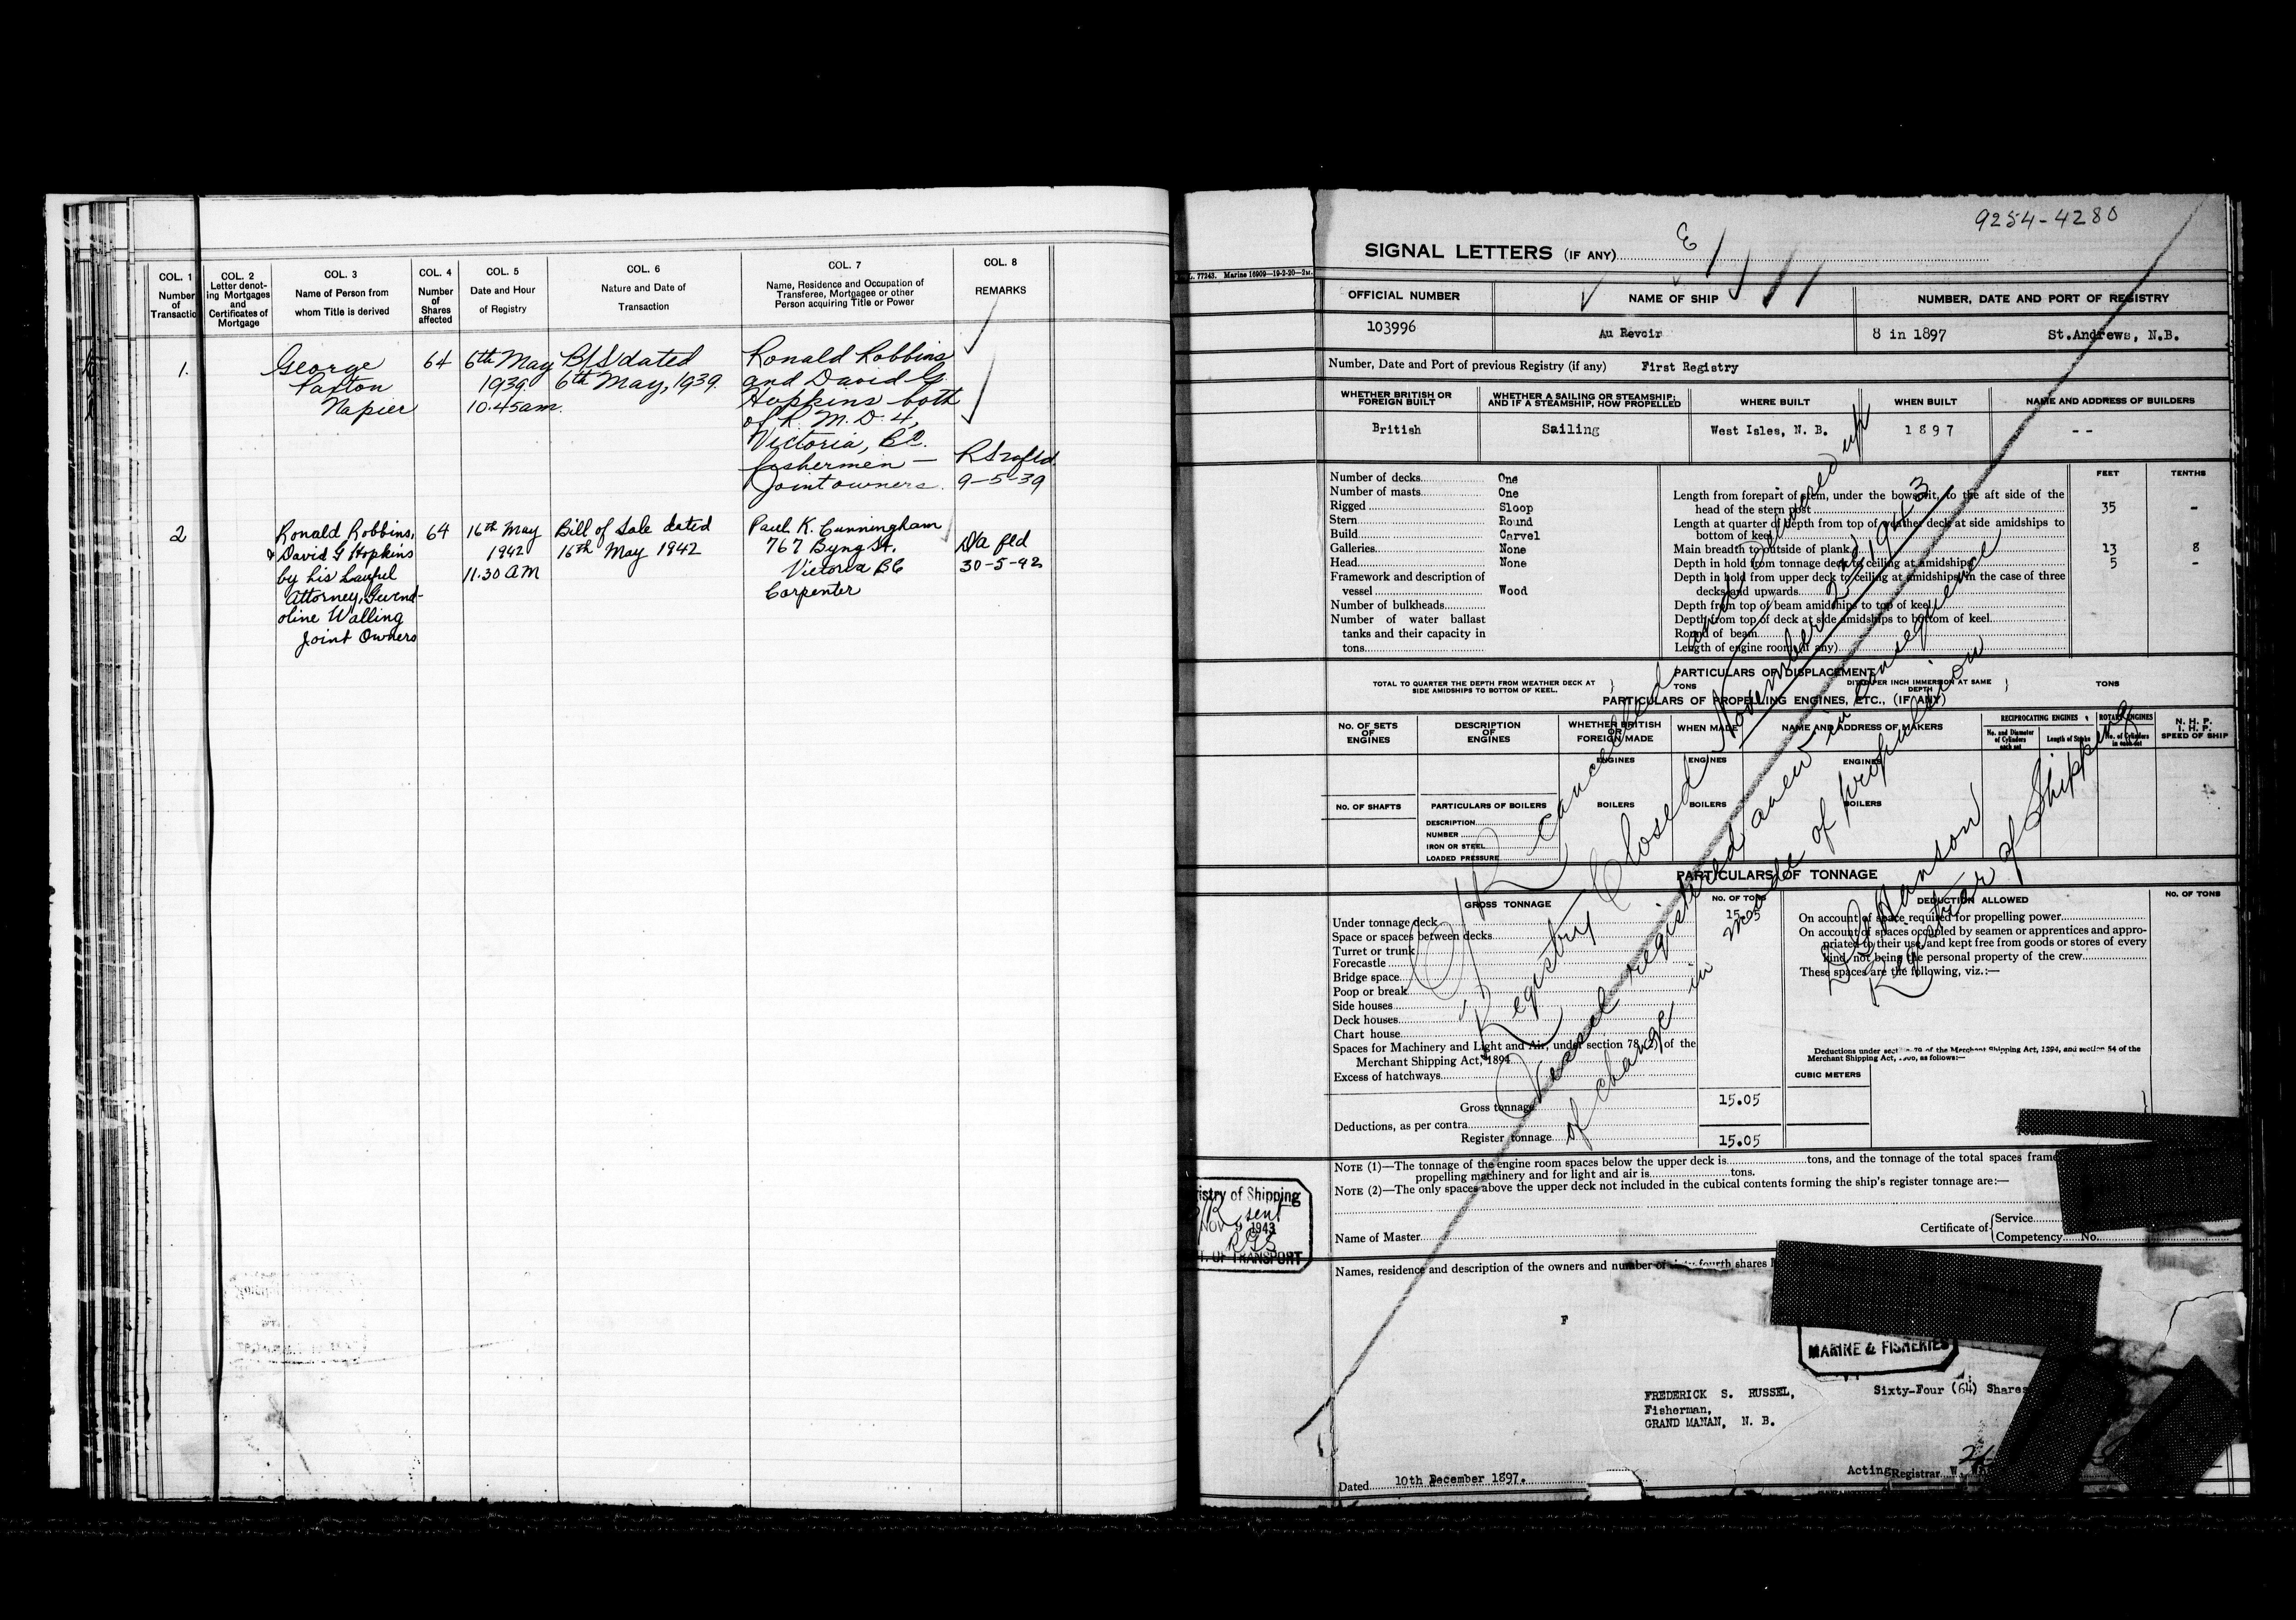 COL. 1
Number
of
Transactio
COL. 2
Letter denot-
ing Mortgages
and
Certificates of
Mortgage
COL. 3
Name of Person from
whom Title is derived
COL. 4
Number
of
Shares
affected
COL. 5
Date and Hour
of Registry
COL. 6
Nature and Date of
Transaction
COL. 7
Name, Residence and Occupation of
Transferee, Mortgagee or other
Person acquiring Title or Power
COL. 8
REMARKS
1.
George
Paxton
Napier
64
6th May
1939
10.45am.
B/S dated
6th May, 1939.
Ronald Robbins
and David G.
Hopkins both
of R. M. D. 4,
Victoria, BC.
fishermen —
Joint owners.
9-5-39
2
Ronald Robbins,
& David G Hopkins
by his Lawful
Attorney, Gwend-
oline Walling
Joint Owners
64
16th May
1942
11.30 AM
Bill of Sale dated
16th May 1942
Paul K. Cunningham
767 Byng St.
Victoria BC
Carpenter
Da fld
30-5-42
9254-4280
SIGNAL LETTERS (IF ANY)
E
77243. Marine 16909—19-2-20—2M.
OFFICIAL NUMBER
NAME OF SHIP
NUMBER, DATE AND PORT OF REGISTRY
103996
Au Revoir
8 in 1897
St.Andrews, N.B.
Number, Date and Port of previous Registry (if any)
First Registry
WHETHER BRITISH OR
FOREIGN BUILT
WHETHER A SAILING OR STEAMSHIP;
AND IF A STEAMSHIP, HOW PROPELLED
WHERE BUILT
WHEN BUILT
NAME AND ADDRESS OF BUILDERS
British
Sailing
West Isles, N. B.
1897
--
Number of decks
One
Number of masts
One
Rigged
Sloop
Stern
Round
Build
Carvel
Galleries
None
Head
None
Framework and description of
vessel
Wood
Number of bulkheads
Number of water ballast
tanks and their capacity in
tons
FEET
TENTHS
Length from forepart of stem, under the bowsprit, to the aft side of the
head of the stern post
35
-
Length at quarter of depth from top of weather deck at side amidships to
bottom of keel
Main breadth to outside of plank
13
8
Depth in hold from tonnage deck to ceiling at amidships
5
-
Depth in hold from upper deck to ceiling at amidships, in the case of three
decks and upwards
Depth from top of beam amidships to top of keel
Depth from top of deck at side amidships to bottom of keel
Round of beam
Length of engine room (if any)
PARTICULARS OF DISPLACEMENT
TOTAL TO QUARTER THE DEPTH FROM WEATHER DECK AT
SIDE AMIDSHIPS TO BOTTOM OF KEEL.
TONS
DITTO PER INCH IMMERSION AT SAME
DEPTH
TONS
PARTICULARS OF PROPELLING ENGINES, ETC., (IF ANY)
NO. OF SETS
OF
ENGINES
DESCRIPTION
OF
ENGINES
WHETHER BRITISH
OR
FOREIGN MADE
WHEN MADE
NAME AND ADDRESS OF MAKERS
RECIPROCATING ENGINES
No. and Diameter
of Cylinders
each set
Length of Stroke
ROTARY ENGINES
No. of Cylinders
in each set
N. H. P.
I. H. P.
SPEED OF SHIP
ENGINES
ENGINES
ENGINES
NO. OF SHAFTS
PARTICULARS OF BOILERS
BOILERS
BOILERS
BOILERS
DESCRIPTION
NUMBER
IRON OR STEEL
LOADED PRESSURE
PARTICULARS OF TONNAGE
GROSS TONNAGE
NO. OF TONS
DEDUCTION ALLOWED
NO. OF TONS
Under tonnage deck
15.05
Space or spaces between decks
Turret or trunk
Forecastle
Bridge space
Poop or break
Side houses
Deck houses
Chart house
Spaces for Machinery and Light and Air, under section 78 (2) of the
Merchant Shipping Act, 1894
Excess of hatchways
Gross tonnage
15.05
Deductions, as per contra
Register tonnage
15.05
On account of space required for propelling power
On account of spaces occupied by seamen or apprentices and appro-
priated to their use, and kept free from goods or stores of every
kind, not being the personal property of the crew
These spaces are the following, viz.:—
Deductions under section 79 of the Merchant Shipping Act, 1894, and section 54 of the
Merchant Shipping Act, as follows:—
CUBIC METERS
C/R cancelled and delivered up
Registry Closed November 2nd 1943
Vessel registered anew in consequence
of change in mode of propulsion
Hanson
Registrar of Shipping
NOTE (1)—The tonnage of the engine room spaces below the upper deck is tons, and the tonnage of the total spaces frame
propelling machinery and for light and air is tons.
NOTE (2)—The only spaces above the upper deck not included in the cubical contents forming the ship's register tonnage are:—
istry of Shipping
sent
NOV 9 1943
RGS
T. OF TRANSPORT
Name of Master
Certificate of
Service
Competency No.
Names, residence and description of the owners and number of sixty-fourth shares
F
MARINE & FISHERIES
FREDERICK S. RUSSEL,
Fisherman,
GRAND MANAN, N. B.
Sixty-Four (64) Shares
Dated 10th December 1897.
Acting Registrar W.